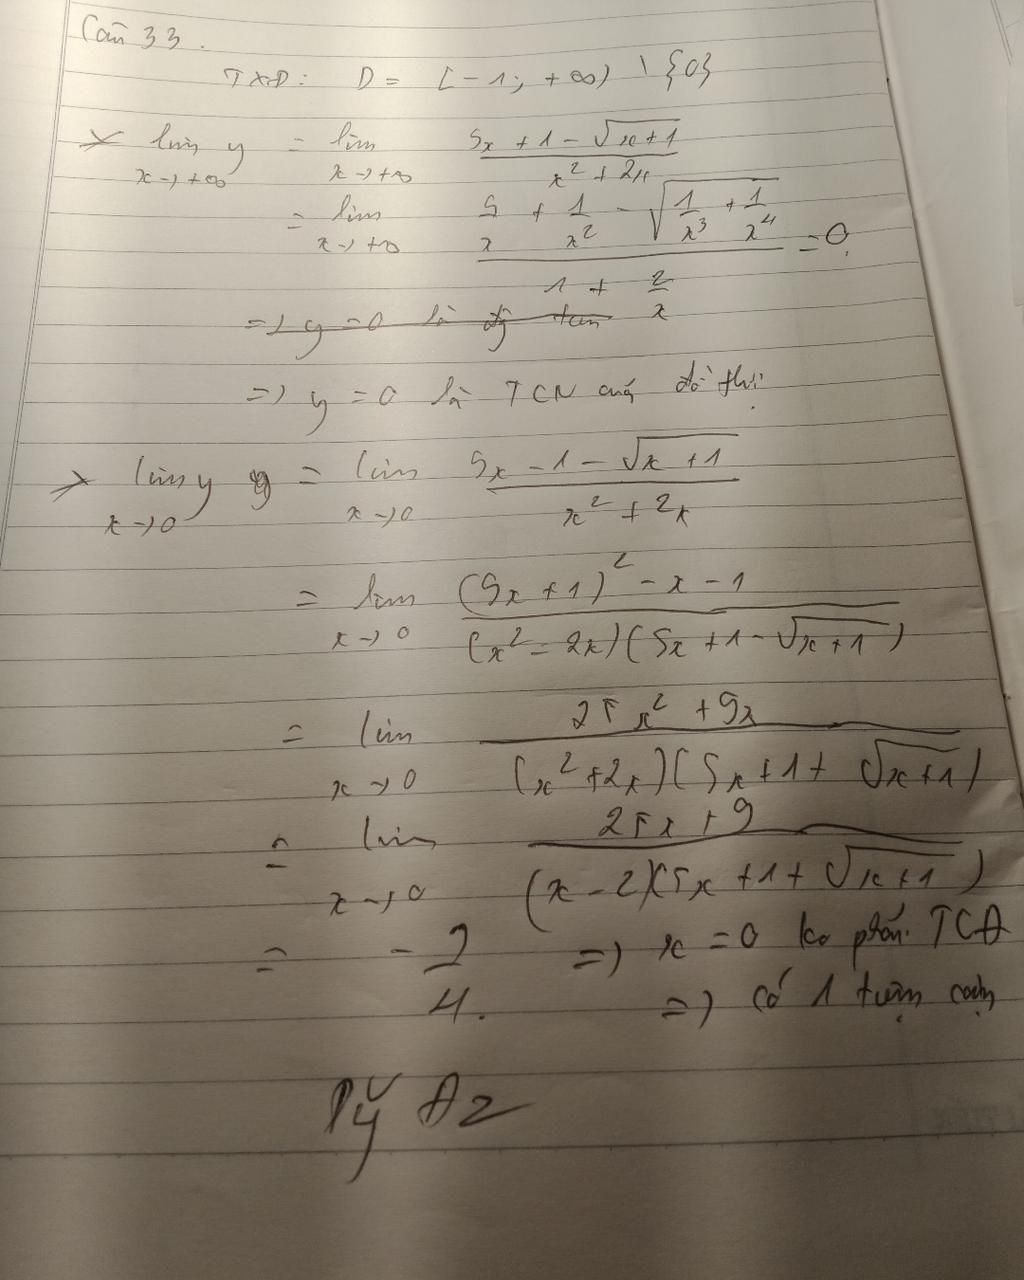 Câu 33.
TXĐ: D = [-1; +∞) \ {0}
* lim y = lim (5x + 1 - √(x+1)) / (x² + 2x)
x→+∞ x→+∞
= lim (5/x + 1/x² - √(1/x³ + 1/x⁴)) / (1 + 2/x) = 0.
x→+∞
=> y = 0 là
=> y = 0 là TCN của đồ thị.
* lim y = lim (5x - 1 - √(x+1)) / (x² + 2x)
x→0 x→0
= lim ((5x+1)² - x - 1) / ((x² - 2x)(5x + 1 - √(x+1)))
x→0
= lim (25x² + 9x) / ((x² + 2x)(5x + 1 + √(x+1)))
x→0
= lim (25x + 9) / ((x - 2)(5x + 1 + √(x+1)))
x→0
= -9/4. => x = 0 ko phải TCĐ
=> có 1 tiệm cận